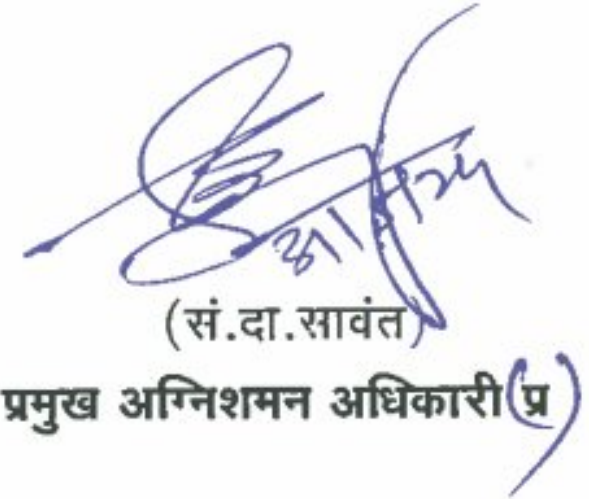 (सं.दा.सावंत)
प्रमुख अग्निशमन अधिकारी(प्र)